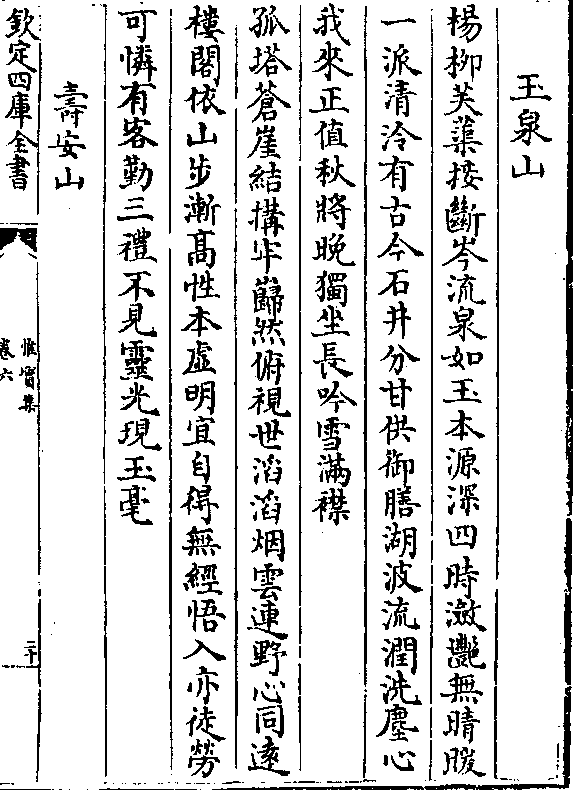 玉泉山
楊柳芙蕖接斷岑流泉如玉本源深四時瀲灩無晴暖
一派清泠有古今石井分甘供御膳湖波流潤洗塵心
我來正值秋將晚獨坐長吟雪滿襟
孤塔蒼崖結搆牢巋然俯視世滔滔烟雲連野心同遠
樓閣依山步漸高性本虛明宜自得無經悟入亦徒勞
可憐有客勤三禮不見靈光現玉毫
壽安山
欽定四庫全書
惟實集
卷六
二十